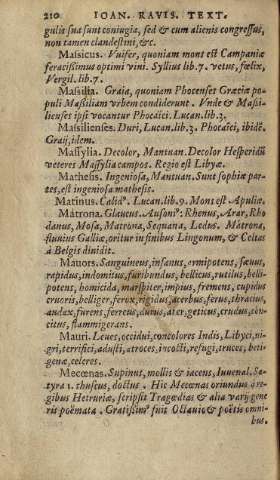 210 IOAN. RAVIS. TEXT.
guliæ sua sunt coniugia, sed & cum alienis congressus,
non tamen clandestini, &c.
Massicus. Vuifer, quoniam mont est Campaniæ
feracissimus optimi vini. Syllius lib.7. vetus, fœlix,
Vergil. lib.7.
Massilia. Graia, quoniam Phocenses Græciæ po-
puli Massiliam vrbem condiderunt. Vnde & Massi-
lienses ipsi vocantur Phocaici. Lucan. lib.3.
Massilienses. Duri, Lucan. lib.3. Phocaici, ibidẽ.
Graij, idem.
Massylia. Decolor, Mantuan. Decolor Hesperidũ
veteres Massylia campos. Regio est Libyæ.
Mathesis. Ingeniosa, Mantuan. Sunt sophiæ par-
tes, est ingeniosa mathesis.
Matinus. Lucan. lib.9. Mons est Apuliæ.
Matrona. Glaucus. Auson⁹: Rhenus, Arar, Rho
danus, Mosa, Matrona, Sequana, Ledus. Matrona,
fluuius Galliæ, oritur in finibus Lingonum, & Celtas
à Belgis diuidit.
Mauors. Sanguineus, insanus, armipotens, sæuus,
rapidus, indomitus, furibundus, bellicus, rutilus, belli-
potens, homicida, marspiter, impius, fremens, cupidus
cruoris, belliger, ferox, rigidus, acerbus, ferus, thracius,
audax, furens, ferreus, durus, ater, geticus, crudus, con-
citus, flammigerans.
Mauri. Leues, occidui, concolores Indis, Libyci, ni-
gri, terrifici, adusti, atroces, incocti, refugi, truces, beti-
genæ, celeres.
Mecœnas. Supinus, mollis & iacens, Iuuenal. Sa-
tyra 1. thuscus, doctus. Hic Mecœnas oriundus è re-
gibus Hetruriæ, scripsit Tragœdias & alia varij gene
ris poëmata. Gratissim⁹ fuit Octauio & poëtis omni-
bus.